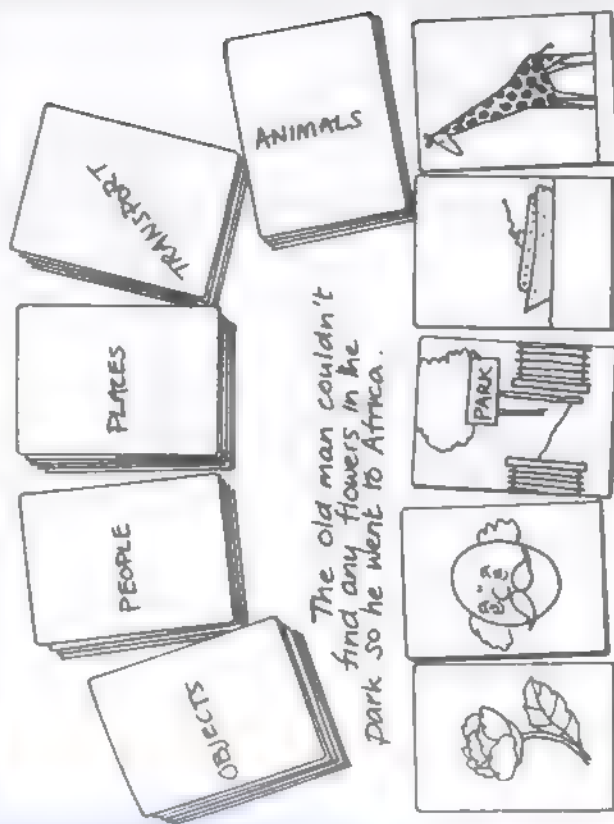 OBJECTS
PEOPLE
PLACES
TRANSPORT
ANIMALS
The old man couldn't
find any flowers in the
park so he went to Africa.
PARK